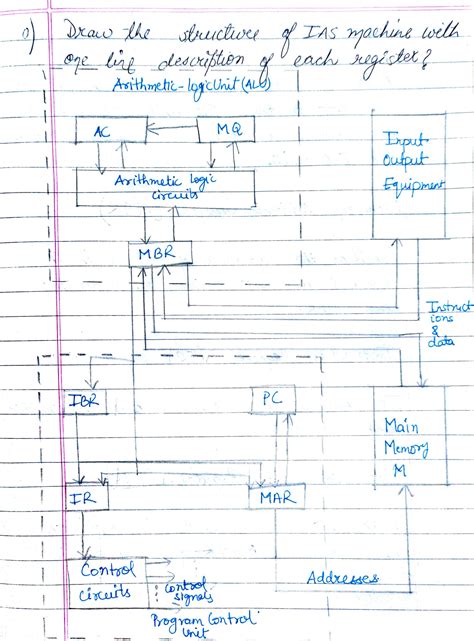 Q) Draw the structure of IAS machine with
one line description of each register?
Arithmetic-Logic Unit (ALU)
AC
MQ
Input
Output
Equipment
Arithmetic Logic
Circuits
MBR
Instruct
ions
&
data
IBR
PC
Main
Memory
M
IR
MAR
Control
Circuits
Control
signals
Addresses
Program Control
Unit